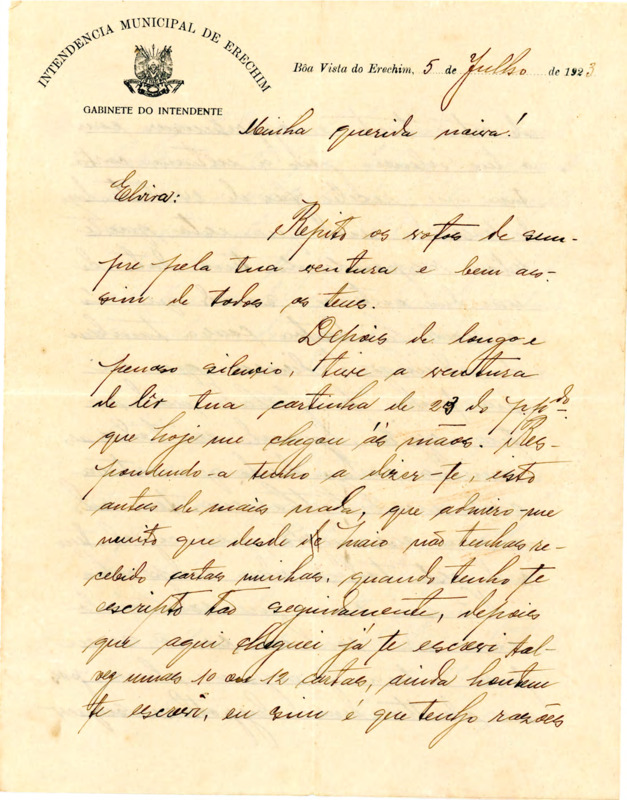 INTENDENCIA MUNICIPAL DE ERECHIM
GABINETE DO INTENDENTE
Bôa Vista do Erechim, 5 de Julho de 1923
Minha querida noiva!
Elvira:
Repito os votos de sem-
pre pela tua ventura e bem as-
sim de todos os teus.
Depois de longo e
penoso silencio, tive a ventura
de lêr tua cartinha de 23 do ppdo.
que hoje me chegou ás mãos. Res-
pondendo-a tenho a dizer-te, isto
antes de mais nada, que admiro-me
muito que desde Maio não tenhas re-
cebido cartas minhas, quando tenho te
escripto tão seguidamente, depois
que aqui cheguei já te escrevi tal-
vez umas 10 ou 12 cartas, ainda hontem
te escrevi, eu sim é que tenho razões